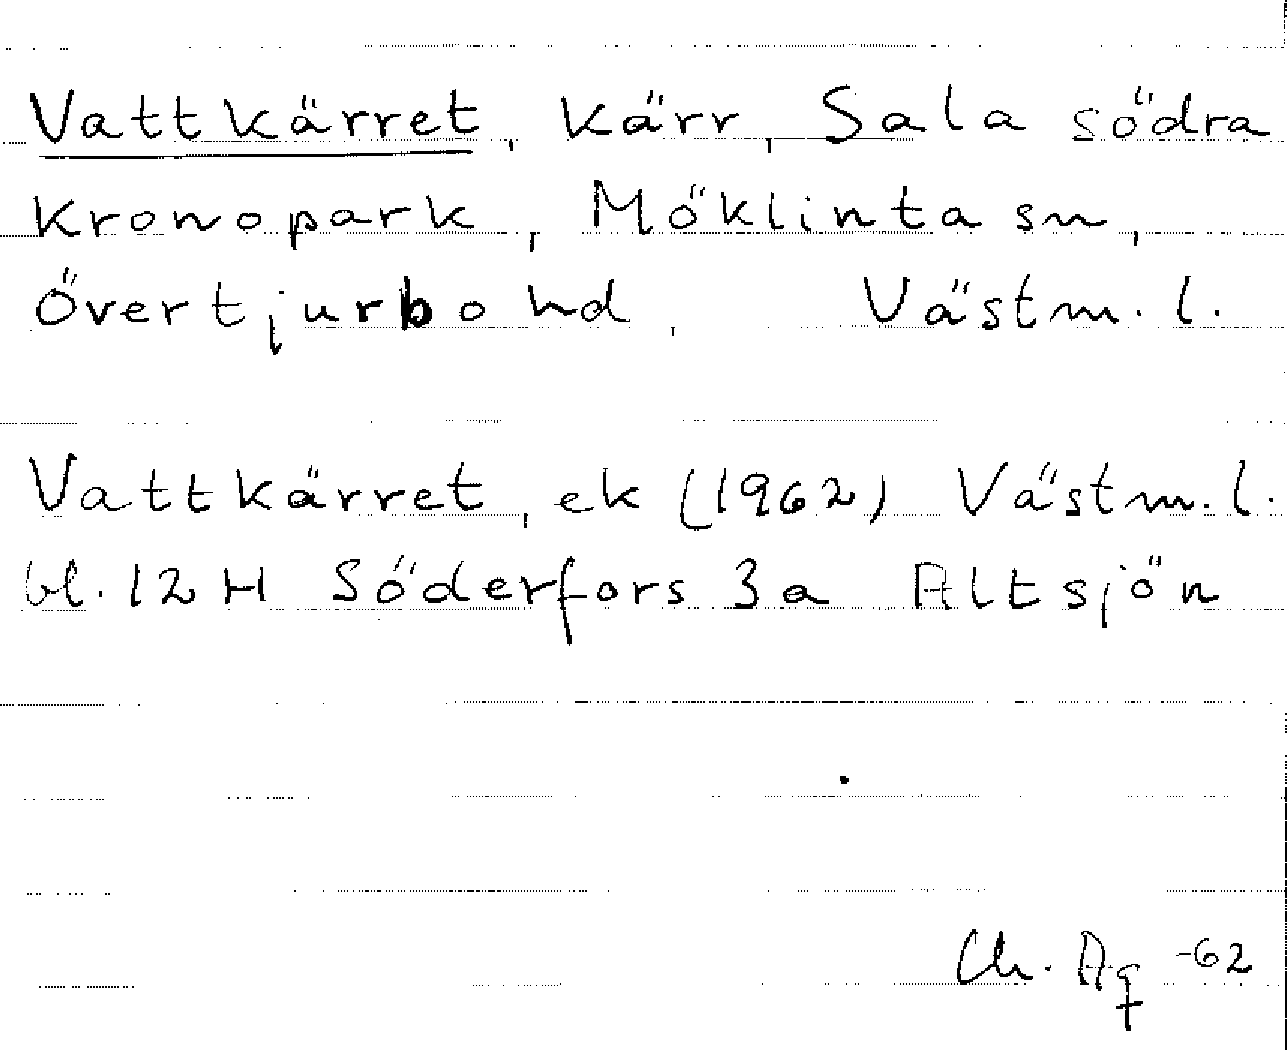 Vattkärret, kärr, Sala södra
Kronopark, Möklinta sn,
Övertjurbo hd, Västm. l.
Vattkärret, ek (1962) Västm. l.
bl. 12 H Söderfors 3a Altsjön
Ch. Aq -62